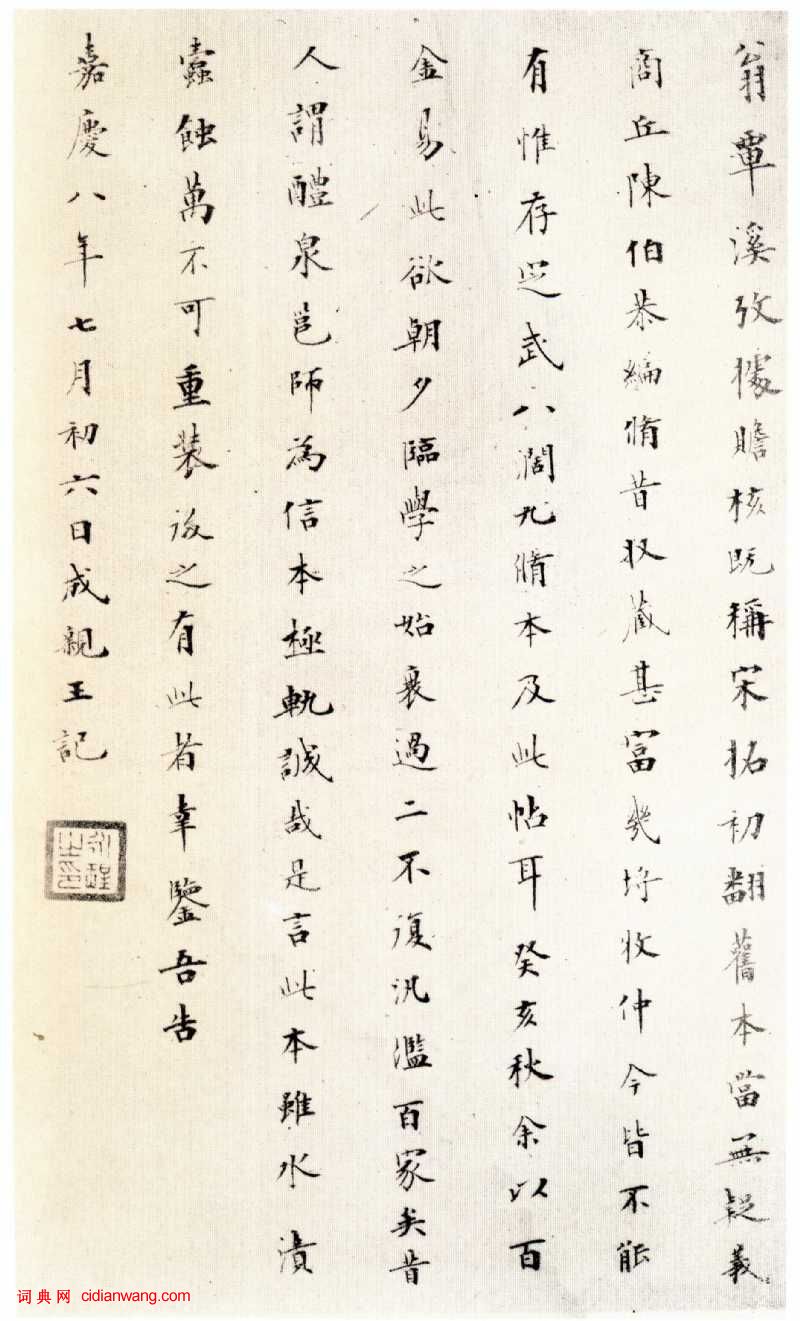 翁覃溪攷據贍核既稱宋拓初翻舊本當無疑義
商丘陳伯恭編脩昔收藏甚富幾埒牧仲今皆不能
有惟存定武八闊九脩本及此帖耳癸亥秋余以百
金易此欲朝夕臨學之始衰過二不復汎濫百家矣昔
人謂醴泉邕師為信本極軌誠哉是言此本雖水漬
蠹蝕萬不可重裝後之有此者幸鑒吾告
嘉慶八年七月初六日成親王記
永瑆之印
词典网 cidianwang.com